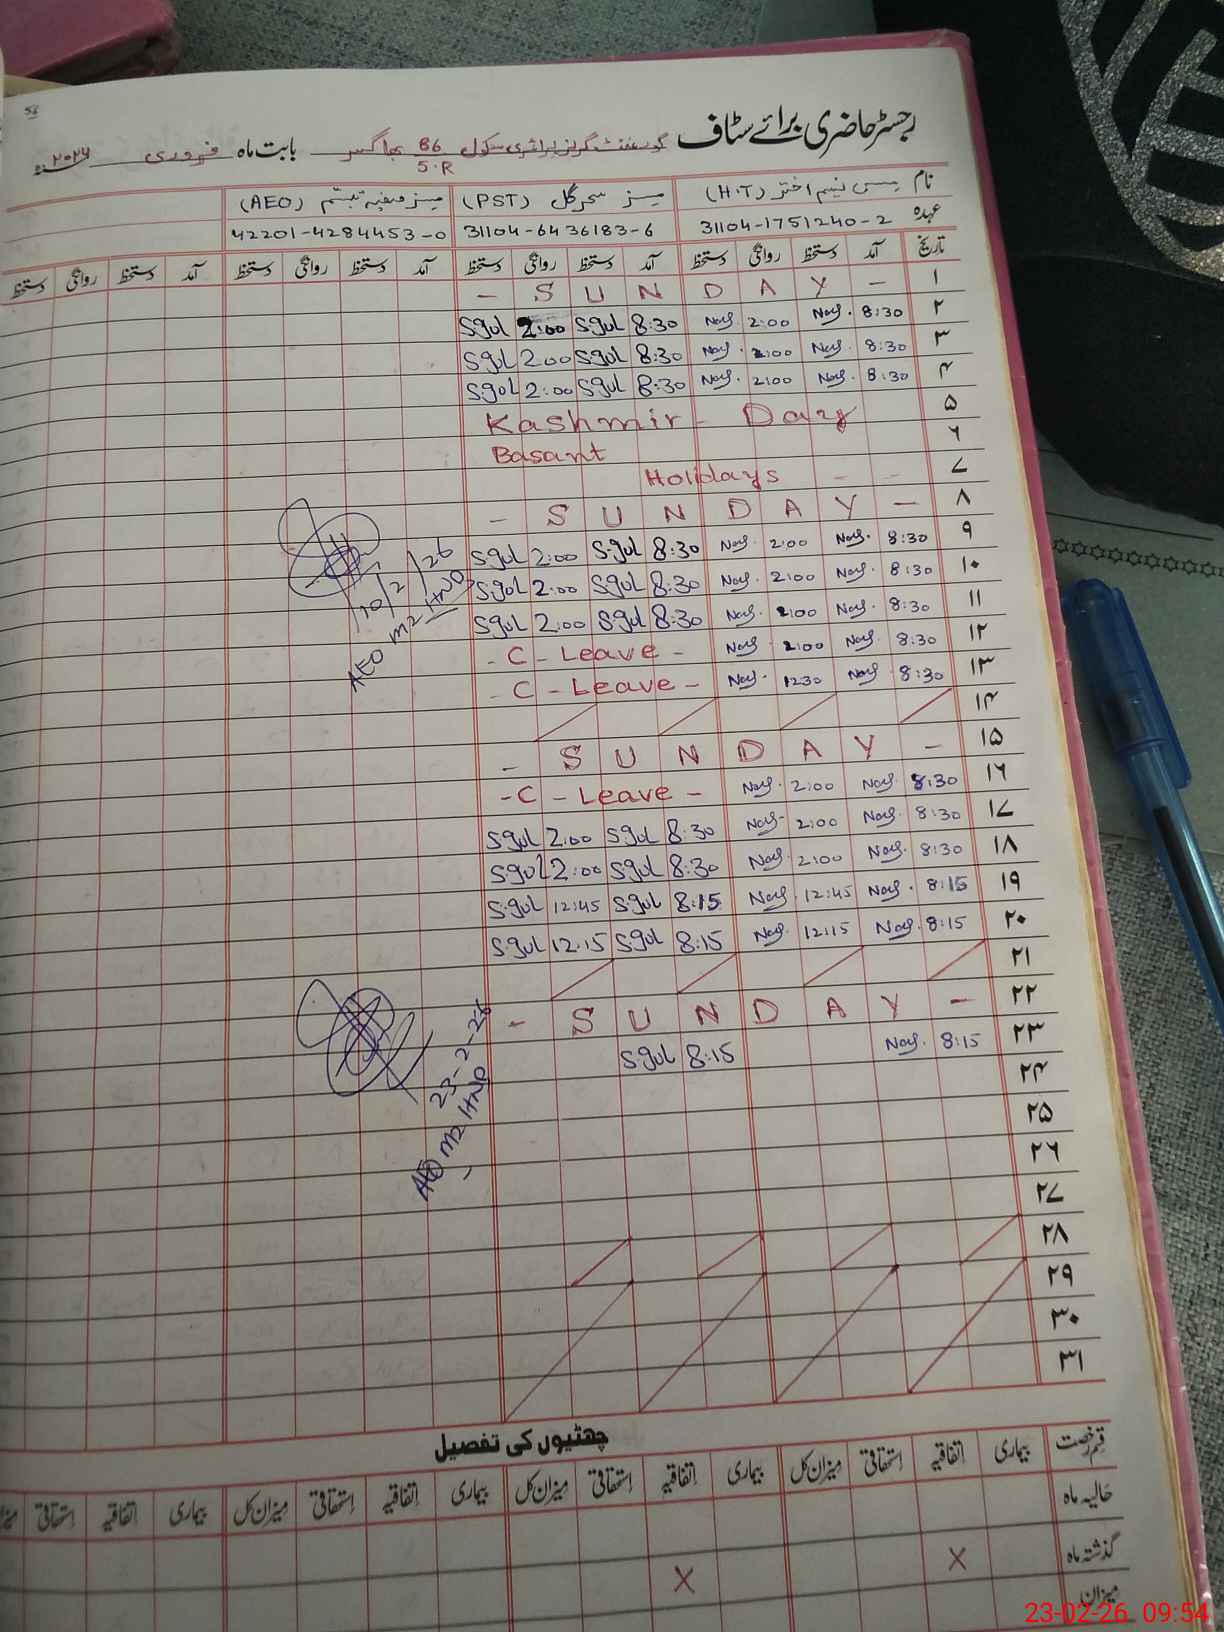 56
رجسٹر حاضری برائے سٹاف گورنمنٹ گرلز پرائمری سکول 86/5.R بھاگسر بابت ماہ فروری ۲۰۲۶ء
نام مس نسیم اختر (H.T) مسز سحر گل (PST) مسز صفیہ تبسم (AEO)
عہدہ 31104-1751240-2 31104-6436183-6 42201-4284453-0
تاریخ آمد دستخط روانگی دستخط آمد دستخط روانگی دستخط آمد دستخط روانگی دستخط آمد دستخط روانگی دستخط
۱ - S U N D A Y -
۲ S.gul 2:00 S.gul 8:30 Nas. 2:00 Nas. 8:30
۳ S.gul 2:00 S.gul 8:30 Nas. 2:00 Nas. 8:30
۴ S.gul 2:00 S.gul 8:30 Nas. 2:00 Nas. 8:30
۵ Kashmir - Day
۶ Basant
۷ Holidays - -
۸ - S U N D A Y -
۹ S.gul 2:00 S.gul 8:30 Nas. 2:00 Nas. 8:30
۱۰ S.gul 2:00 S.gul 8:30 Nas. 2:00 Nas. 8:30
۱۱ S.gul 2:00 S.gul 8:30 Nas. 2:00 Nas. 8:30
۱۲ - C - Leave - Nas. 2:00 Nas. 8:30
۱۳ - C - Leave - Nas. 1230 Nas. 8:30
10/2/26
AEO M2 HND
۱۴
۱۵ - S U N D A Y -
۱۶ - C - Leave - Nas. 2:00 Nas. 8:30
۱۷ S.gul 2:00 S.gul 8:30 Nas. 2:00 Nas. 8:30
۱۸ S.gul 2:00 S.gul 8:30 Nas. 2:00 Nas. 8:30
۱۹ S.gul 12:45 S.gul 8:15 Nas. 12:45 Nas. 8:15
۲۰ S.gul 12:15 S.gul 8:15 Nas. 12:15 Nas. 8:15
۲۱
۲۲ - S U N D A Y -
۲۳ S.gul 8:15 Nas. 8:15
23-2-26
AEO M2 HND
۲۴
۲۵
۲۶
۲۷
۲۸
۲۹
۳۰
۳۱
چھٹیوں کی تفصیل
قسم رخصت بیماری اتفاقیہ استحقاقی میزان کل بیماری اتفاقیہ استحقاقی میزان کل بیماری اتفاقیہ استحقاقی میزان کل بیماری اتفاقیہ استحقاقی
حالیہ ماہ
گذشتہ ماہ X X
میزان
23-02-26 09:54